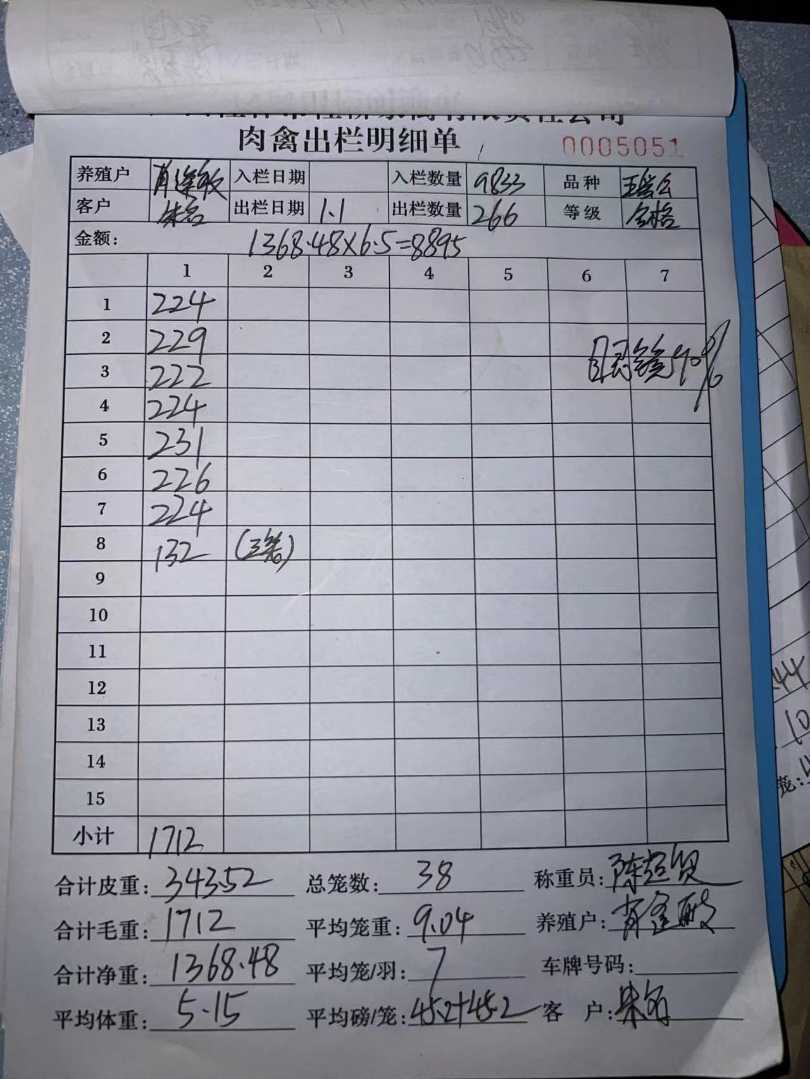 肉禽出栏明细单 0005051
养殖户 入栏日期 入栏数量 9833 品种
客户 朱名 出栏日期 1.1 出栏数量 266 等级 合格
金额: 1368.48×6.5=8895
1 2 3 4 5 6 7
1 224
2 229
3 222
4 224
5 231
6 226
7 224
8 132 (三笼)
9
10
11
12
13
14
15
小计 1712
合计皮重: 343.52 总笼数: 38 称重员: 陈超贤
合计毛重: 1712 平均笼重: 9.04 养殖户:
合计净重: 1368.48 平均笼/羽: 7 车牌号码:
平均体重: 5.15 平均磅/笼: 45.2+45.2 客 户: